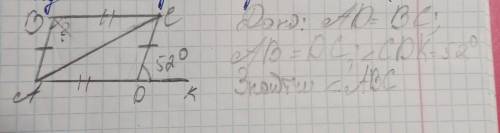 B
C
?
52°
A
D
K
Дано: AD = BC;
AB = DC; <CDK = 52°
Знайти <ABC